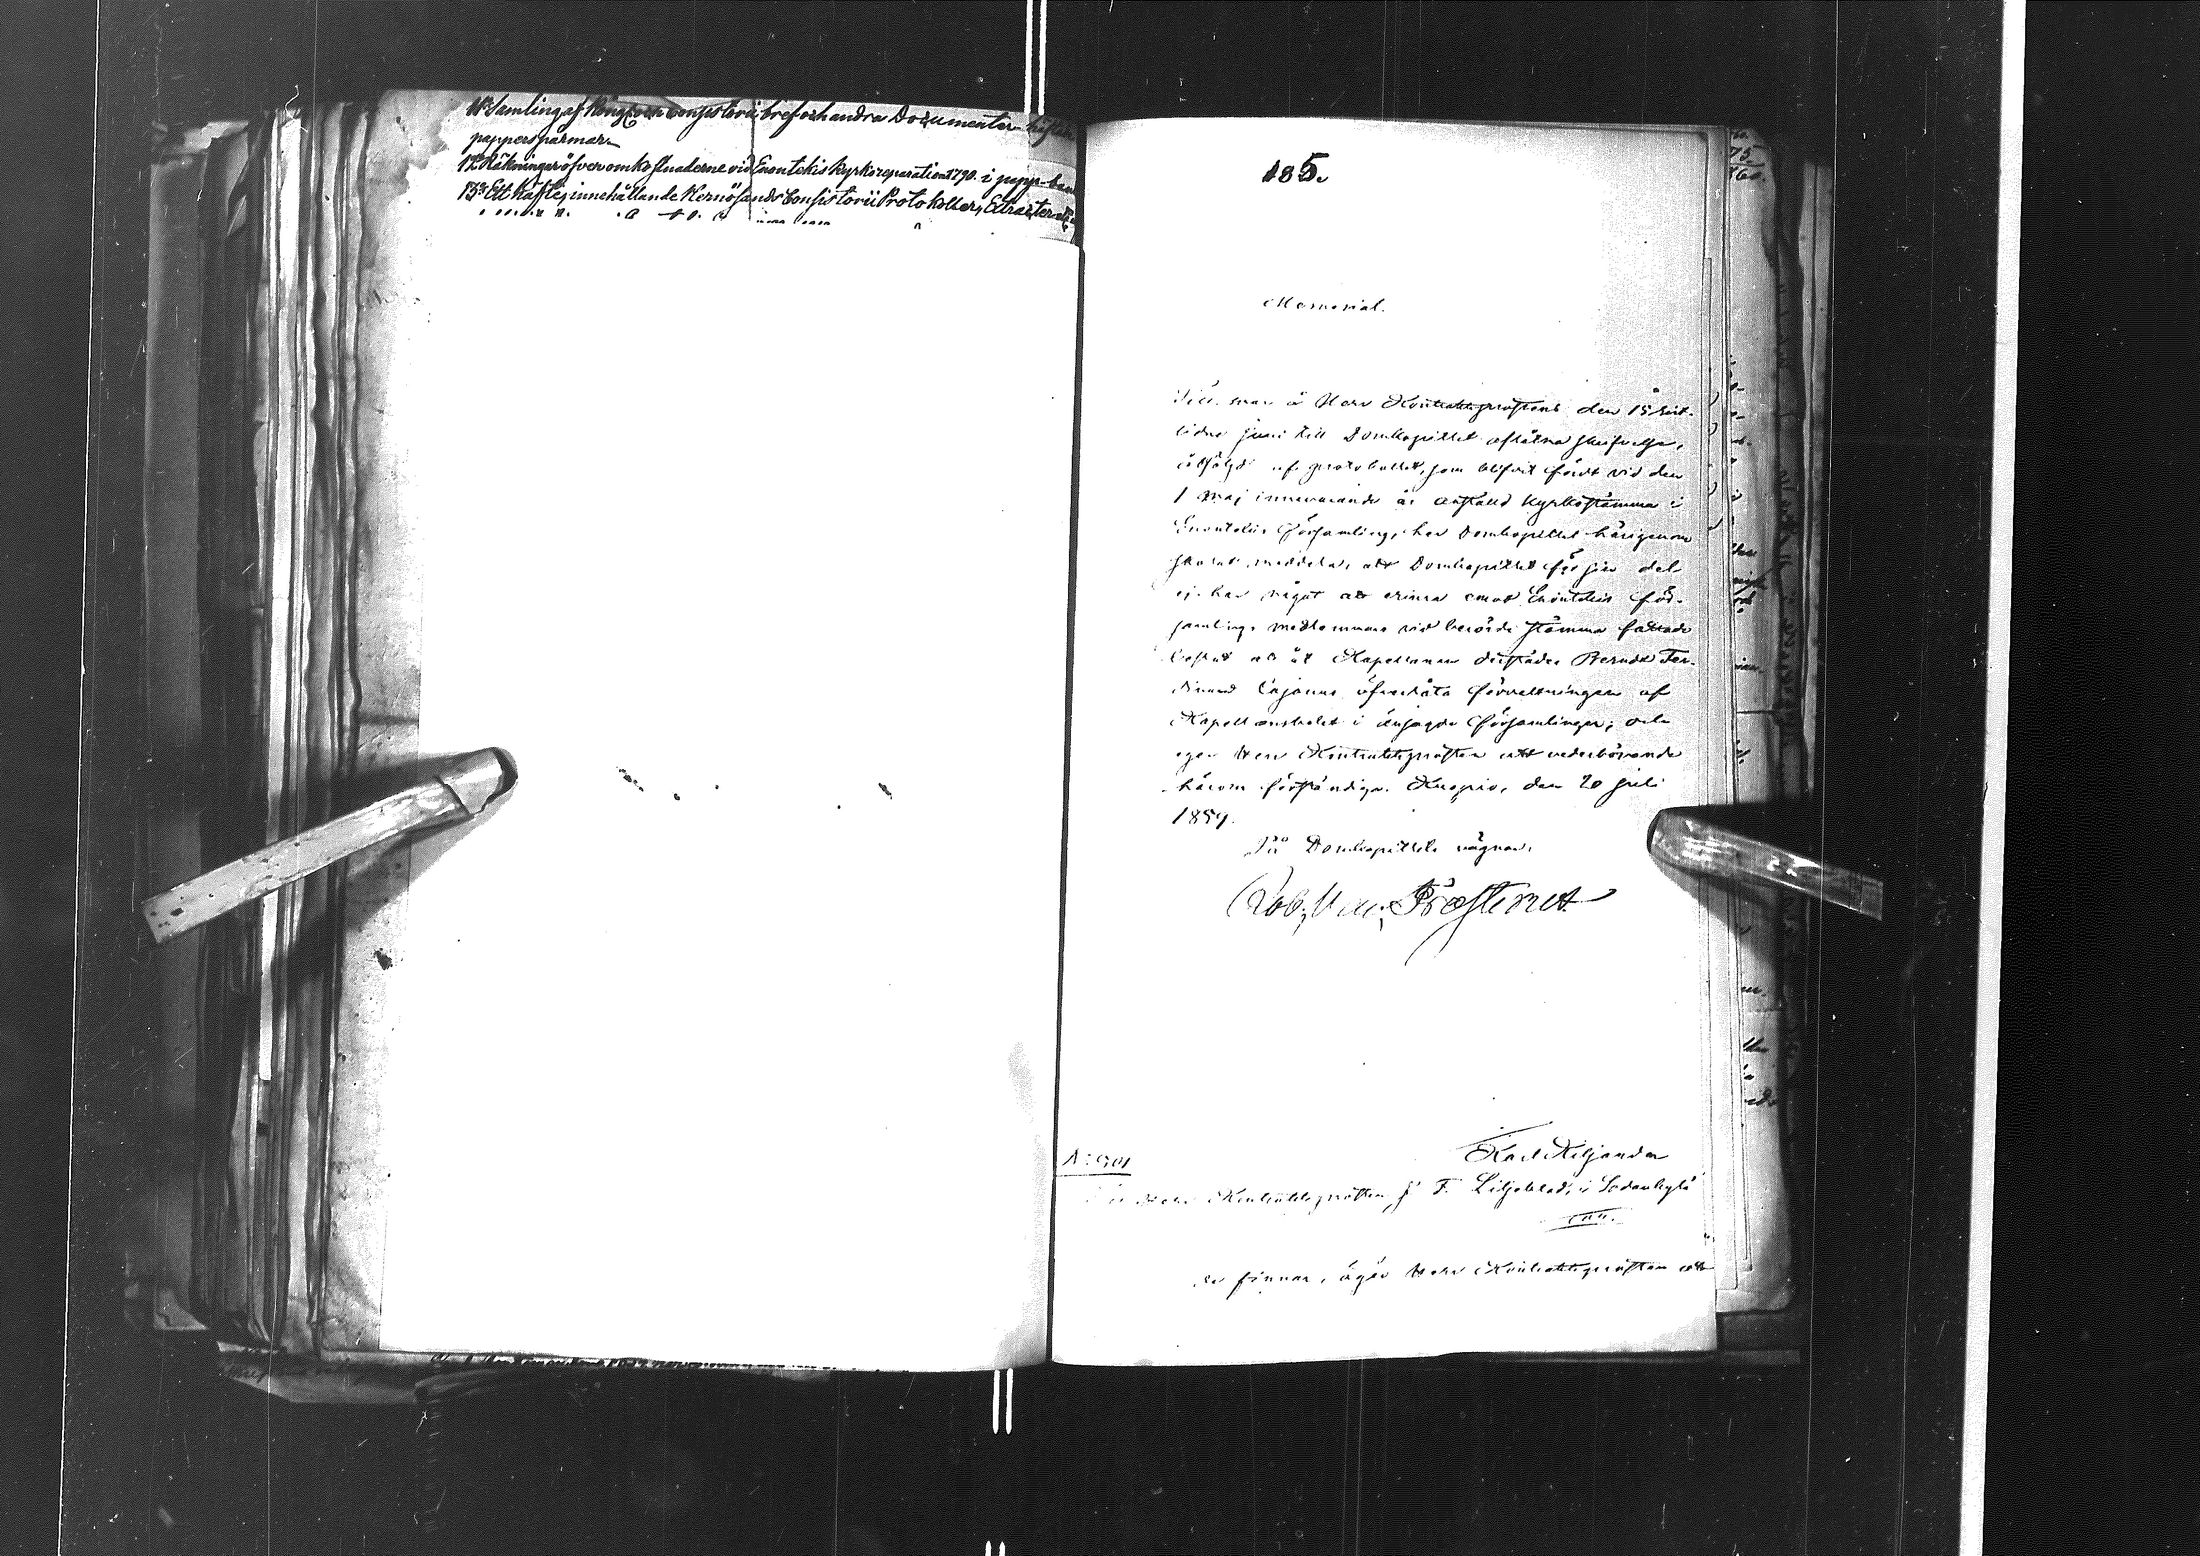 11o Samling af Kongl. och Consistorii bref och andra Documenter häftade
papperspärmar.
12o Räkningar öfver omkostnaderne vid Enontekis Kyrkoreparation 1790. i papp-band
13o Ett häfte, innehållande Hernösands Consistorii Protokoller, Extracter
185.
Memorial.
Till svar å Herr Kontraktsprostens den 15 sist-
lidne juni till Domkapitlet aflåtna skrifvelse,
åtföljd af protokollet, som blifvit fördt vid den
1 Maj innevarande år anställd kyrkostämma i
Enontekis församling, har Domkapitlet härigenom
skolat meddela, att Domkapitlet för sin del
ej har något att erinra emot Enontekis för-
samlings medlemmars vid berörde stämma fattade
beslut att åt Kapellanen derstädes Berndt Fer-
dinand Cajanus öfverlåta förvaltningen af
Kapellansbolet i änsagde församlingen; och
eger Herr Kontraktsprosten att vederbörande
härom förständiga. Kuopio, den 20 juli
1859.
På Domkapitlets vägnar:
Rob. V. Frosterus
Karl Kiljander
N: 901
Till Herr Kontraktsprosten J. F. Liljeblad, i Sodankylä
finnas, äger Herr Kontraktsprosten att